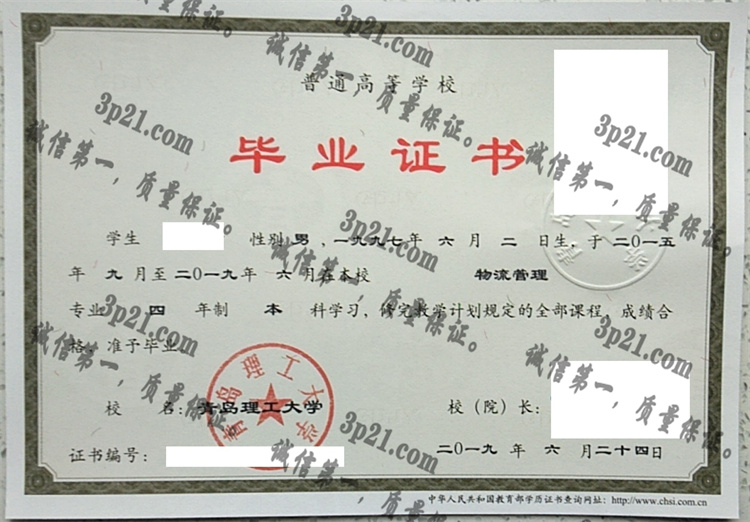 普通高等学校
毕业证书
学生 性别 男，一九九七年 六 月 二 日生，于 二〇一五
年 九 月至 二〇一九年 六 月在本校 物流管理
专业 四 年制 本 科学习，修完教学计划规定的全部课程，成绩合
格，准予毕业。
校 名：青岛理工大学
校（院）长：
证书编号：
二〇一九 年 六 月二十四日
中华人民共和国教育部学历证书查询网址：http://www.chsi.com.cn
青岛理工大学
3p21.com
诚信第一，质量保证。
3p21.com
诚信第一，质量保证。
3p21.com
诚信第一，质量保证。
3p21.com
诚信第一，质量保证。
3p21.com
诚信第一，质量保证。
3p21.com
诚信第一，质量保证。
3p21.com
诚信第一，质量保证。